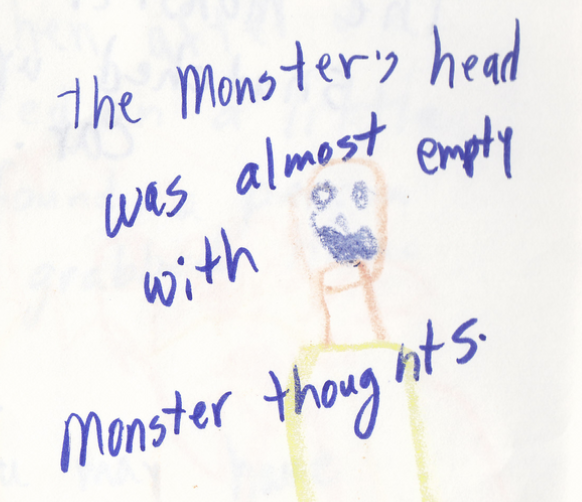 the Monster's head
was almost empty
with
Monster thoughts.